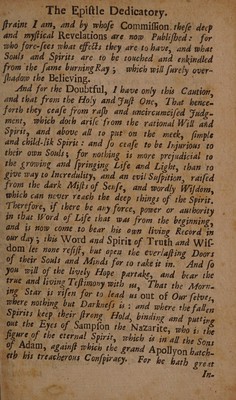 The Epistle Dedicatory.
straint I am, and by whose Commission these deep
and mystical Revelations are now Published: for
who fore-sees what effects they are to have, and what
Souls and Spirits are to be touched and enkindled
from the same burning Ray; which will surely over-
shadow the Believing.
And for the Doubtful, I have only this Caution,
and that from the Holy and Just One, That hence-
forth they cease from rash and uncircumcised Judg-
ment, which doth arise from the rational Will and
Spirit, and above all to put on the meek, simple
and child-like Spirit: and so cease to be Injurious to
their own Souls; for nothing is more prejudicial to
the growing and springing Life and Light, than to
give way to Incredulity, and an evil Suspition, raised
from the dark Mists of Sense, and wordly Wisdom,
which can never reach the deep things of the Spirit.
Therefore, if there be any force, power or authority
in that Word of Life that was from the beginning,
and is now come to bear his own living Record in
our day; this Word and Spirit of Truth and Wis-
dom let none resist, but open the everlasting Doors
of their Souls and Minds for to take it in. And so
you will of the lively Hope partake, and bear the
true and living Testimony with us, That the Morn-
ing Star is risen for to lead us out of Our selves,
where nothing but Darkness is: and where the fallen
Spirits keep their strong Hold, binding and putting
out the Eyes of Sampson the Nazarite, who is the
figure of the eternal Spirit, which is in all the Sons
of Adam, against which the grand Apollyon hatch-
eth his treacherous Conspiracy. For he hath great
In-